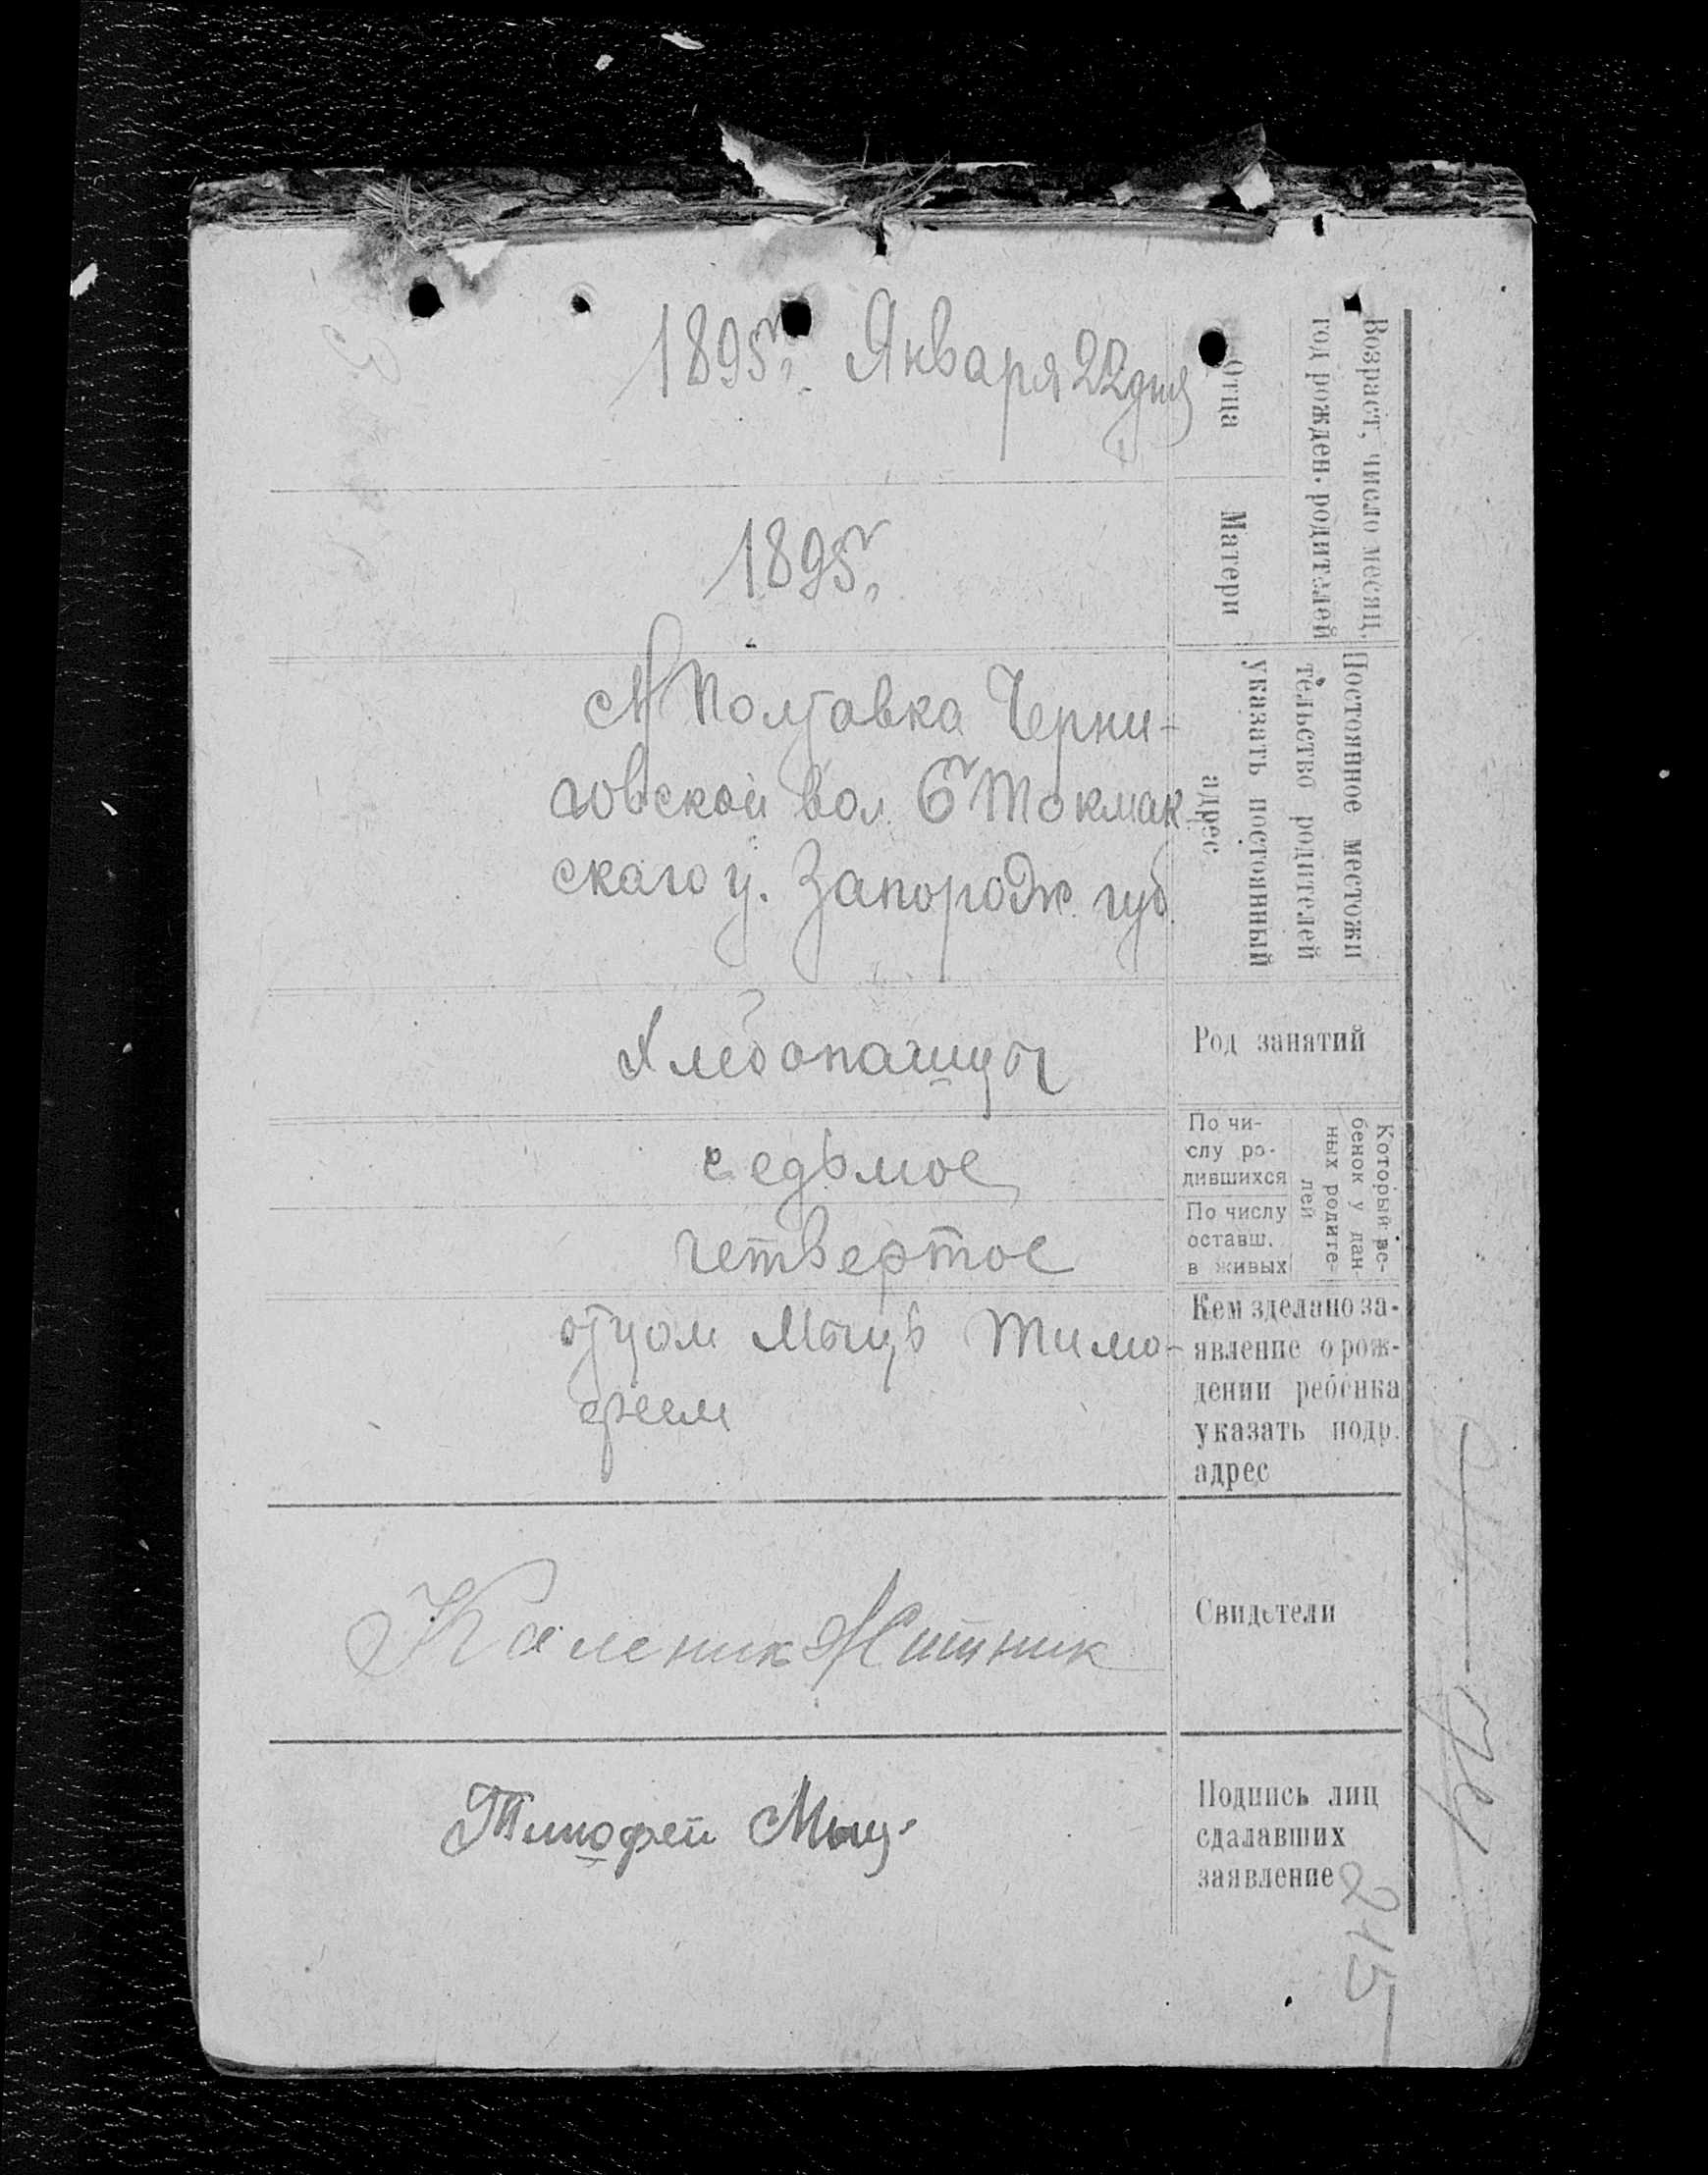 Возраст, число месяц.
год рожден. родителей
Отца
1895г. Января 22 дня
Матери
1895г.
Постоянное местожи
тельство родителей
указать постоянный
адрес
с Н Полтавка Черни-
говской вол. Б Токмак
скаго у. Запорож. губ.
Род занятий
Хлебопашцы
Который ре-
бенок у дан-
ных родите-
лей
По чи-
слу ро-
дившихся
седьмое
По числу
оставш.
в живых
четвертое
Кем зделано за-
явление о рож-
дении ребенка
указать подр.
адрес
отцом Мыць Тимо-
феем
Свидетели
Каленик Житник
Подпись лиц
сдалавших
заявление
Тимофей Мыц.
215